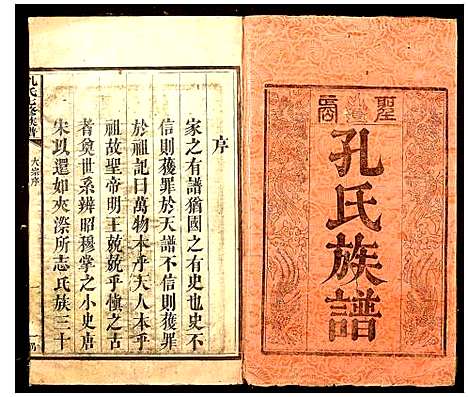 聖裔
孔氏族譜
序
家之有譜猶國之有史也史不
信則獲罪於天譜不信則獲罪
於祖記曰萬物本乎天人本乎
祖故聖帝明王兢兢乎慎之古
者奠世系辨昭穆掌之小史唐
宋以還如夾漈所志氏族三十
大宗序